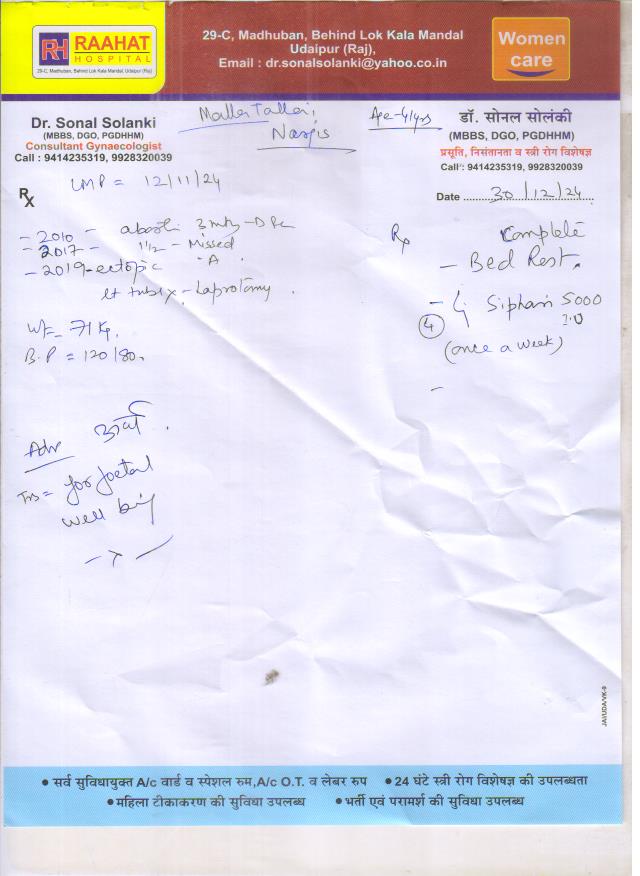 RH RAAHAT
HOSPITAL
29-C, Madhuban, Behind Lok Kala Mandal, Udaipur (Raj)
29-C, Madhuban, Behind Lok Kala Mandal
Udaipur (Raj),
Email : dr.sonalsolanki@yahoo.co.in
Women
care
Dr. Sonal Solanki
(MBBS, DGO, PGDHHM)
Consultant Gynaecologist
Call : 9414235319, 9928320039
Nargis
Age - 41yrs
डॉ. सोनल सोलंकी
(MBBS, DGO, PGDHHM)
प्रसूति, निसंतानता व स्त्री रोग विशेषज्ञ
Call : 9414235319, 9928320039
Date 30/12/24
Rx
LMP = 12/11/24
- 2010 - 3 mths - D&C
- 2017 - 1 1/2 - Missed
A
- 2019 - ectopic
lt tube x - Laprotamy.
Wt - 71 Kg.
B.P = 120/80.
Adv
for foetal
well being
Rx Complete
- Bed Rest.
- 5000
I.U
4
(once a week)
-
JAI/UDA/VK-9
• सर्व सुविधायुक्त A/c वार्ड व स्पेशल रुम,A/c O.T. व लेबर रुप • 24 घंटे स्त्री रोग विशेषज्ञ की उपलब्धता
• महिला टीकाकरण की सुविधा उपलब्ध • भर्ती एवं परामर्श की सुविधा उपलब्ध